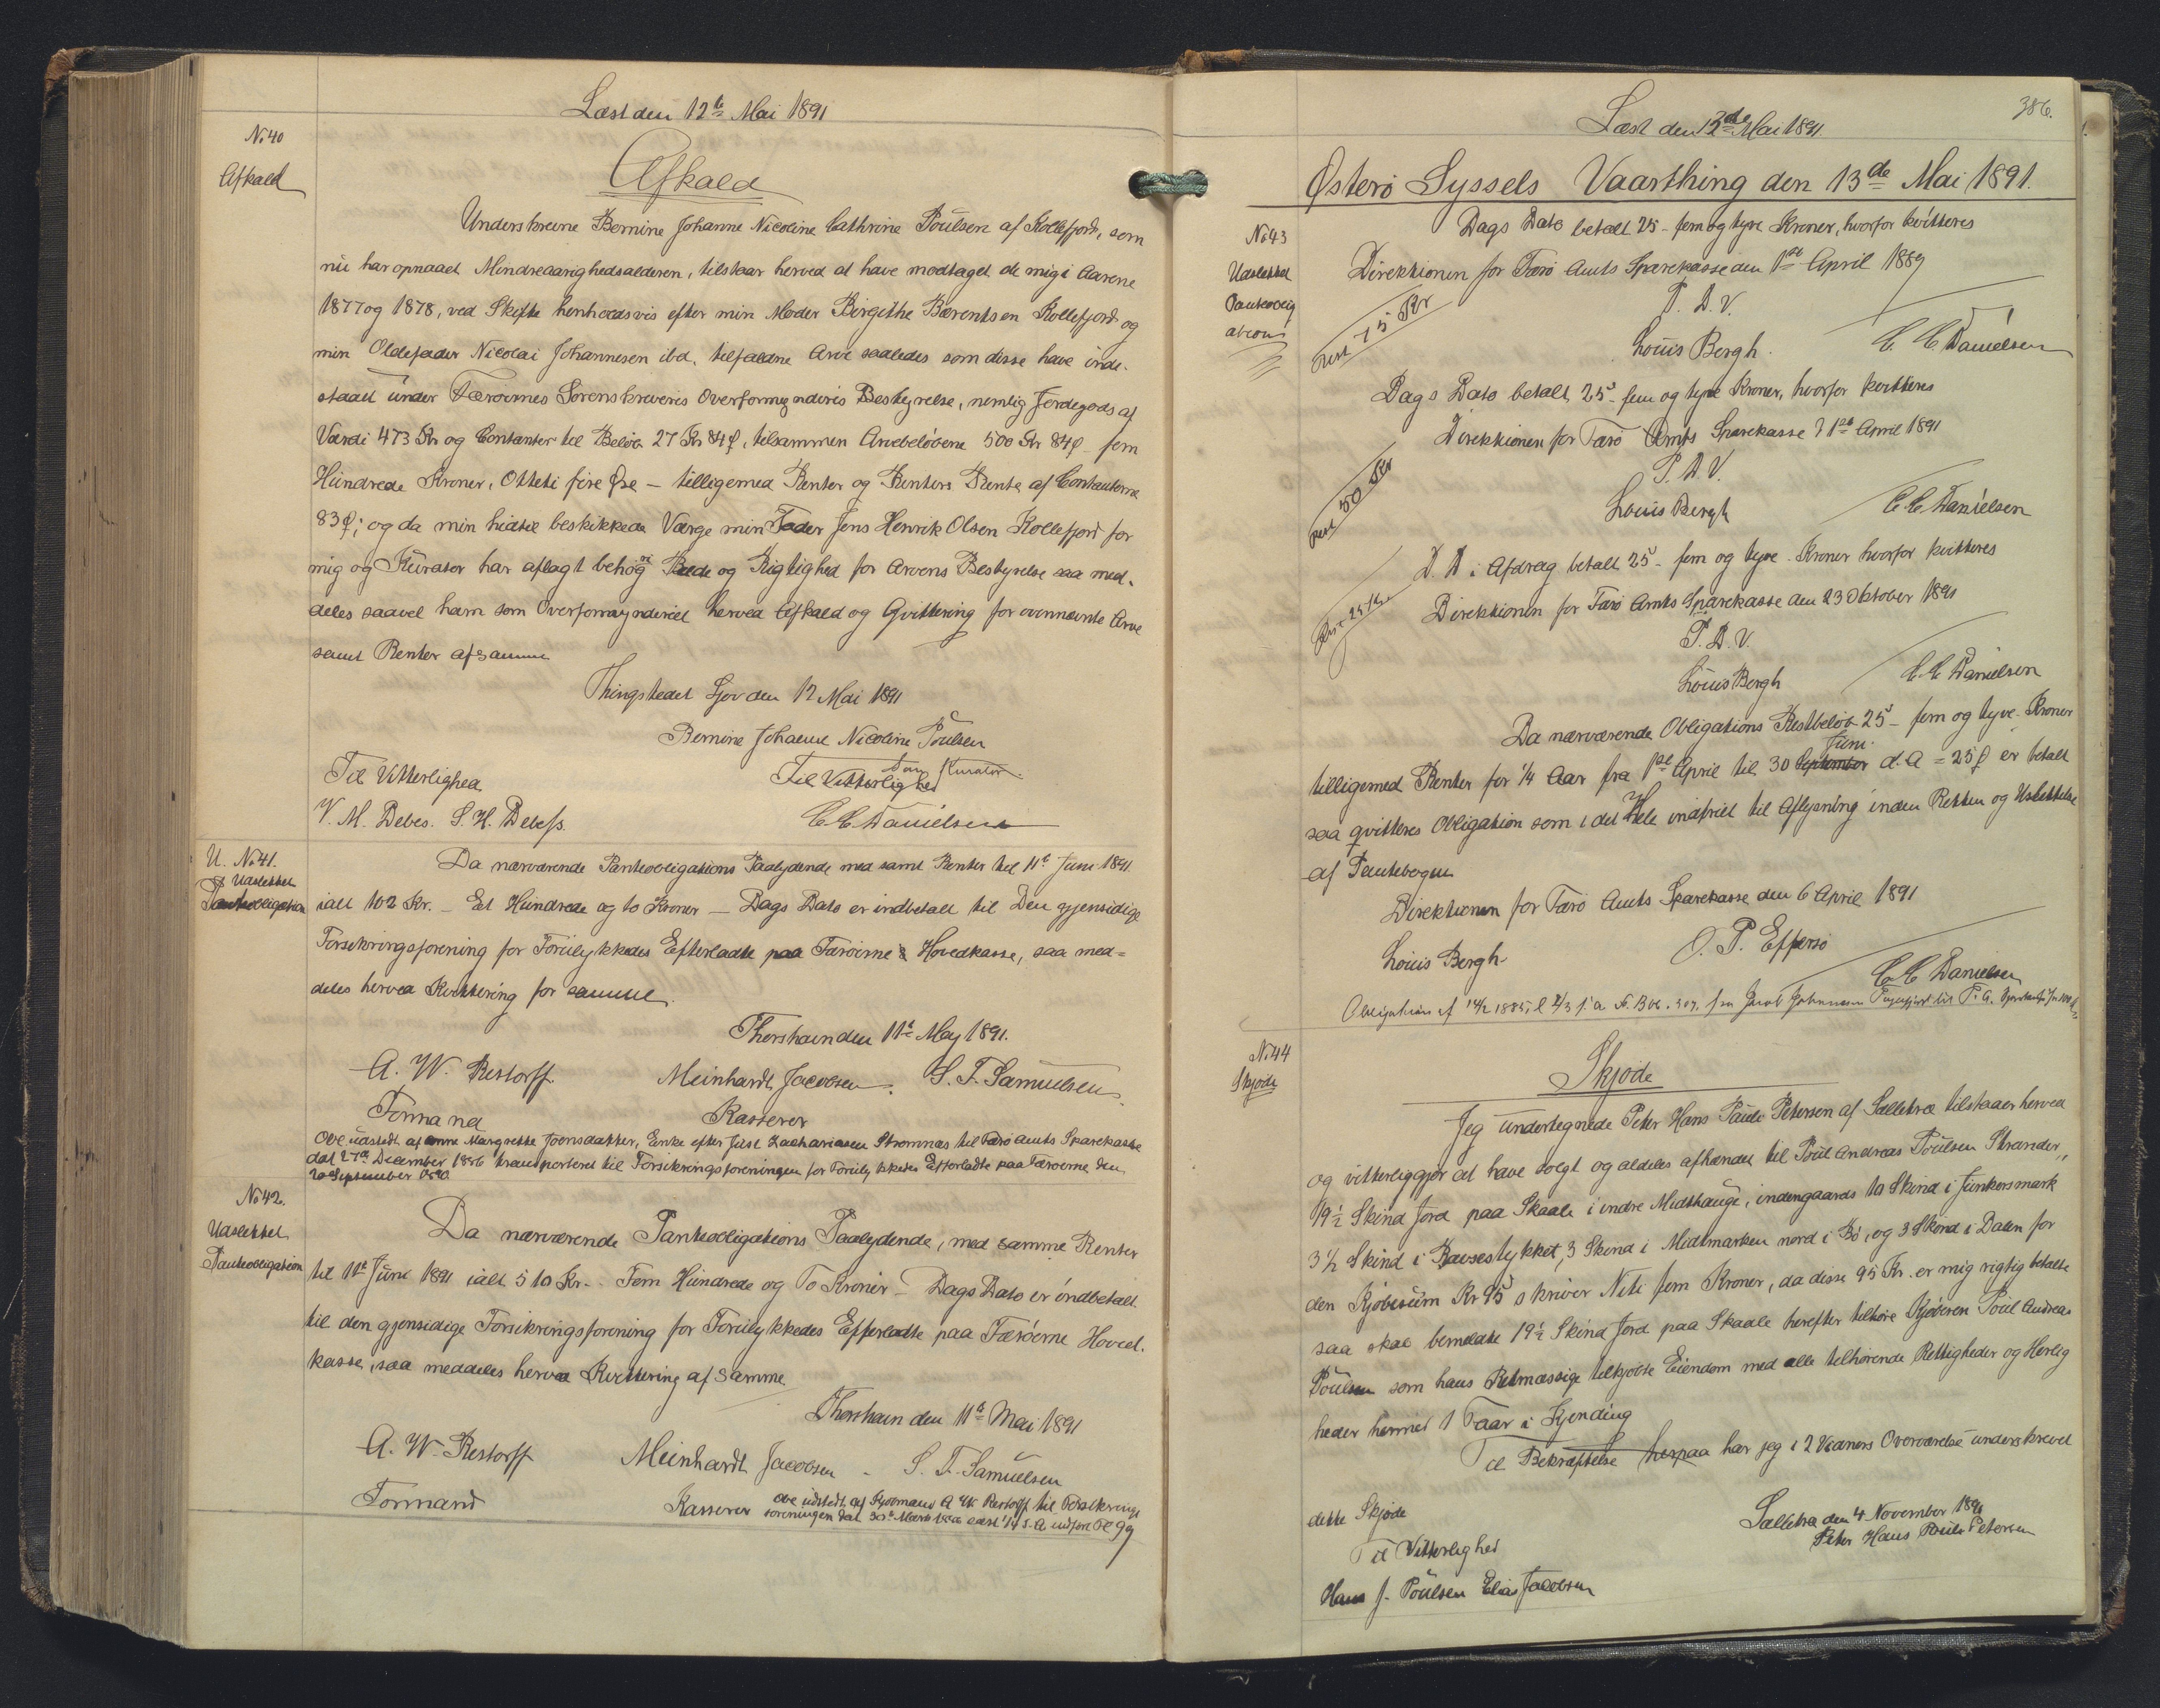 Læst den 12te Mai 1891
No 40
Afkald
Afkald
Underskrevne Bernine Johanne Nicoline Cathrine Poulsen af Kollefjord, som
nu har opnaaet Mindreaarighedsalderen, tilstaar herved at have modtaget de mig i Aarene
1877 og 1878, ved Skifte henholdsvis efter min Moder Birgithe Bærentsen Kollefjord og
min Oldefader Nicolai Johannesen ibd. tilfaldne Arve saaledes som disse have inde-
staaet under Færøernes Sorenskriveris Overformynderis Bestyrelse, nemlig Jordegods af
Værdi 473 Kr og Contanter til Beløb 27 Kr 84 Ø, tilsammen Arvebeløbene 500 Kr 84 Ø fem
Hundrede Kroner, Otteti fire Øre – tilligemed Renter og Renters Rente af Contanterne
83 Ø; og da min hidtil beskikkede Værge min Fader Jens Henrik Olsen Kollefjord for
mig og Kurator har aflagt behørig Rede og Rigtighed for Arvens Bestyrelse saa med-
deles saavel ham som Overformynderiet herved Afkald og Qvittering for ovennævnte Arve
samt Renter af samme
Thingstedet Sjov den 12 Mai 1891
Bernine Johanne Nicoline Poulsen
Til Vitterlighed
Som Kurator.
Til Vitterlighed
V. M. Debes. S. H. Debess.
C. C. Danielsen
U. No 41.
Udslettet
Pantobligation
Da nærværende Pantobligations Paalydende med samt Renter til 11te Juni 1891
ialt 102 Kr. – Et Hundrede og to Kroner – Dags Dato er indbetalt til Den gjensidige
Forsikringsforening for Forulykkedes Efterladte paa Færøerne Hovedkasse, saa med=
deles herved Kvittering for samme.
Thorshavn den 11te Maj 1891.
A. W. Restorff. Meinhardt Jacobsen. S. F. Samuelsen.
Formand Kasserer
Obl udstedt af Anne Margrethe Joensdatter, Enke efter Just Zachariasen Strømnæs til Færø Amts Sparekasse
dat 27de December 1886 transporteret til Forsikringsforeningen for Forulykkedes Efterladte paa Færøerne den
20 September
No 42.
Udslettet
Pantobligation
Da nærværende Pantobligations Paalydende, med samme Renter
til 11te Juni 1891 ialt 510 Kr. – Fem Hundrede og To Kroner – Dags Dato er indbetalt
til den gjensidige Forsikringsforening for Forulykkedes Efterladte paa Færøerne Hoved-
kasse, saa meddeles herved Kvittering af samme
Thorshavn den 11te Mai 1891
A. W. Restorff Meinhardt Jacobsen - S. F. Samuelsen
Formand Kasserer
Obl udstedt af Kjøbmand A W Restorff til Forsikrings
foreningen dat 30te Marts læst
386.
Læst den 12de Mai 1891.
Østerø Syssels Vaarthing den 13de Mai 1891.
No 43
Udslettet
Pantoblig
ation
Dags Dato betalt 25 – fem og tyve Kroner, hvorfor kvitteres
Direktionen for Færø Amts Sparekasse den 1ste April 1889
Rest 75 Kr
P. D. V.
Louis Bergh. C. C. Danielsen
Dags Dato betalt 25 – fem og tyve Kroner, hvorfor kvitteres
Direktionen for Færø Amts Sparekasse d 1ste April 1891
Rest 50 Kr
P. D. V.
Louis Bergh C. C. Danielsen
D. D. i Afdrag betalt 25 – fem og tyve Kroner hvorfor kvitteres
Direktionen for Færø Amts Sparekasse den 23 Oktober 1890
Rest 25 Kr.
P. D. V.
Louis Bergh C. C. Danielsen
Da nærværende Obligations Restbeløb 25 – fem og tyve – Kroner
Juni
tilligemed Renter for 1/4 Aar fra 1ste April til 30 September d. A = 25 Ø er betalt
saa qvitteres Obligation som i det Hele indfriet til Aflysning inden Retten og Udslettelse
af Pantebogen
Direktionen for Færø Amts Sparekasse den 6 April 1891
Louis Bergh O. P. Effersø
C. C. Danielsen
Obligation af 14/2 1885, fra Jacob Johannesen Fuglefjord til F. A.
No 44
Skjøde
Skjøde
Jeg undertegnede Peter Hans Poule Petersen af Selletræ tilstaaer herved
og vitterliggjør at have solgt og aldeles afhændet til Poul Andreas Poulsen Strander,
19 1/2 Skind Jord paa Skaale i indre Midthauge, indengaards 10 Skind i Junkersmark
3 1/2 Skind i 3 Skind i Midtmarken nord i Bø, og 3 Skind i Dalen for
den Kjøbesum Kr 95 skriver Niti fem Kroner, da disse 95 Kr. er mig rigtig betalte
saa skal bemeldte 19 1/2 Skind Jord paa Skaale herefter tilhøre Kjøberen Poul Andreas
Poulsen som hans Retmæssige tilkjøbte Eiendom med alle tilhørende Rettigheder og Herlig
heder hermed 1 Faar i Kjending
Til Bekræftelse herpaa har jeg i 2 Vidners Overværelse underskrevet
dette Skjøde
Selletræ den 4 November 1890
Peter Hans Poule Petersen
Til Vitterlighed
Hans J. Poulsen Elias Jacobsen